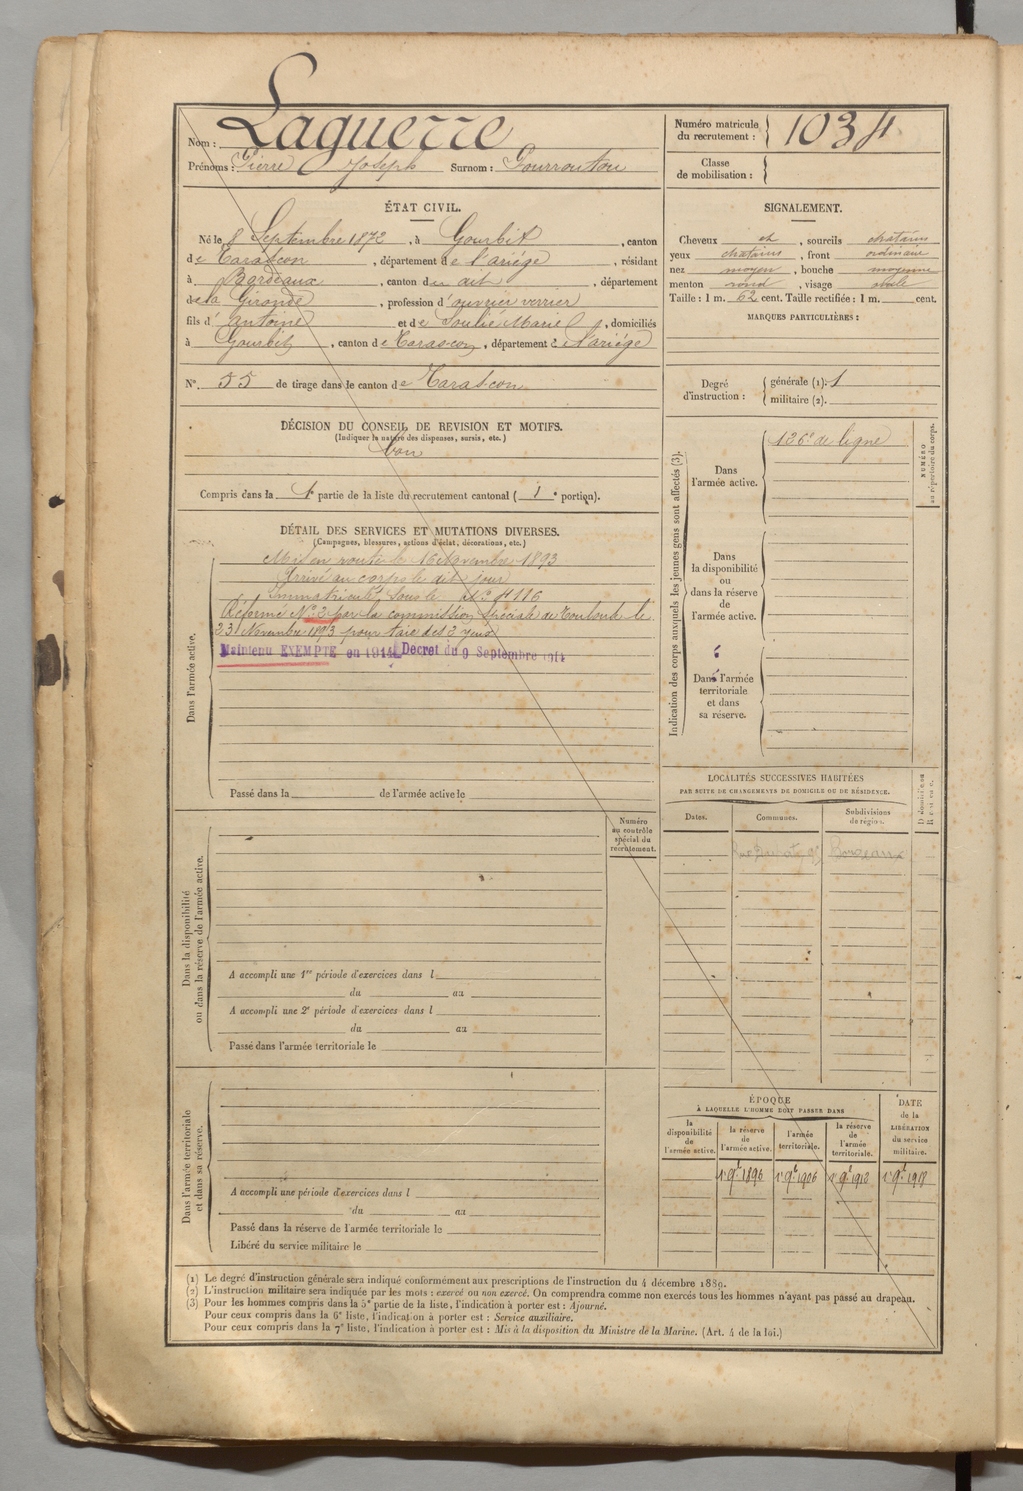 Nom : Laguerre
Prénoms : Pierre Joseph Surnom : Gourroutou
Numéro matricule du recrutement : 1034
Classe de mobilisation :
ÉTAT CIVIL.
Né le 8 Septembre 1872, à Gourbit, canton
de Tarascon, département de l'ariége, résidant
à Bordeaux, canton du dit, département
de la Gironde, profession d'ouvrier verrier
fils d'antoine et de Soulié Marie, domiciliés
à Gourbit, canton de Tarascon, département d l'ariége
N° 55 de tirage dans le canton de Tarascon
SIGNALEMENT.
Cheveux ch, sourcils chatains
yeux chatains, front ordinaire
nez moyen, bouche moyenne
menton rond, visage ovale
Taille : 1 m. 62 cent. Taille rectifiée : 1 m. cent.
MARQUES PARTICULIÈRES :
Degré d'instruction : générale (1). 1
militaire (2).
DÉCISION DU CONSEIL DE REVISION ET MOTIFS.
(Indiquer la nature des dispenses, sursis, etc.)
bon
Compris dans la 1e partie de la liste du recrutement cantonal (1e portion).
DÉTAIL DES SERVICES ET MUTATIONS DIVERSES.
(Campagnes, blessures, actions d'éclat, décorations, etc.)
Dans l'armée active.
Mis en route le 16 Novembre 1893
Arrivé au corps le dit jour
Immatriculé sous le N° 4116
Réformé N° 2 par la commission spéciale de Toulouse le
23 Novembre 1893 pour taie des 2 yeux
Maintenu EXEMPTE en 1914 Décret du 9 Septembre 1914
Passé dans la de l'armée active le
Indication des corps auxquels les jeunes gens sont affectés (3).
Dans l'armée active.
126e de ligne
NUMÉRO au répertoire du corps.
Dans la disponibilité ou dans la réserve de l'armée active.
Dans l'armée territoriale et dans sa réserve.
LOCALITÉS SUCCESSIVES HABITÉES
PAR SUITE DE CHANGEMENTS DE DOMICILE OU DE RÉSIDENCE.
Dates. Communes. Subdivisions de région.
Bordeaux
Dans la disponibilité ou dans la réserve de l'armée active.
Numéro au contrôle spécial du recrutement.
A accompli une 1re période d'exercices dans l
du au
A accompli une 2e période d'exercices dans l
du au
Passé dans l'armée territoriale le
Dans l'armée territoriale et dans sa réserve.
A accompli une période d'exercices dans l
du au
Passé dans la réserve de l'armée territoriale le
Libéré du service militaire le
ÉPOQUE
À LAQUELLE L'HOMME DOIT PASSER DANS
la disponibilité de l'armée active.
la réserve de l'armée active.
l'armée territoriale.
la réserve de l'armée territoriale.
DATE de la LIBÉRATION du service militaire.
1er 9b 1896 1er 9b 1906 1er 9b 1912 1er 9b 1918
(1) Le degré d'instruction générale sera indiqué conformément aux prescriptions de l'instruction du 4 décembre 1889.
(2) L'instruction militaire sera indiquée par les mots : exercé ou non exercé. On comprendra comme non exercés tous les hommes n'ayant pas passé au drapeau.
(3) Pour les hommes compris dans la 5e partie de la liste, l'indication à porter est : Ajourné.
Pour ceux compris dans la 6e liste, l'indication à porter est : Service auxiliaire.
Pour ceux compris dans la 7e liste, l'indication à porter est : Mis à la disposition du Ministre de la Marine. (Art. 4 de la loi.)